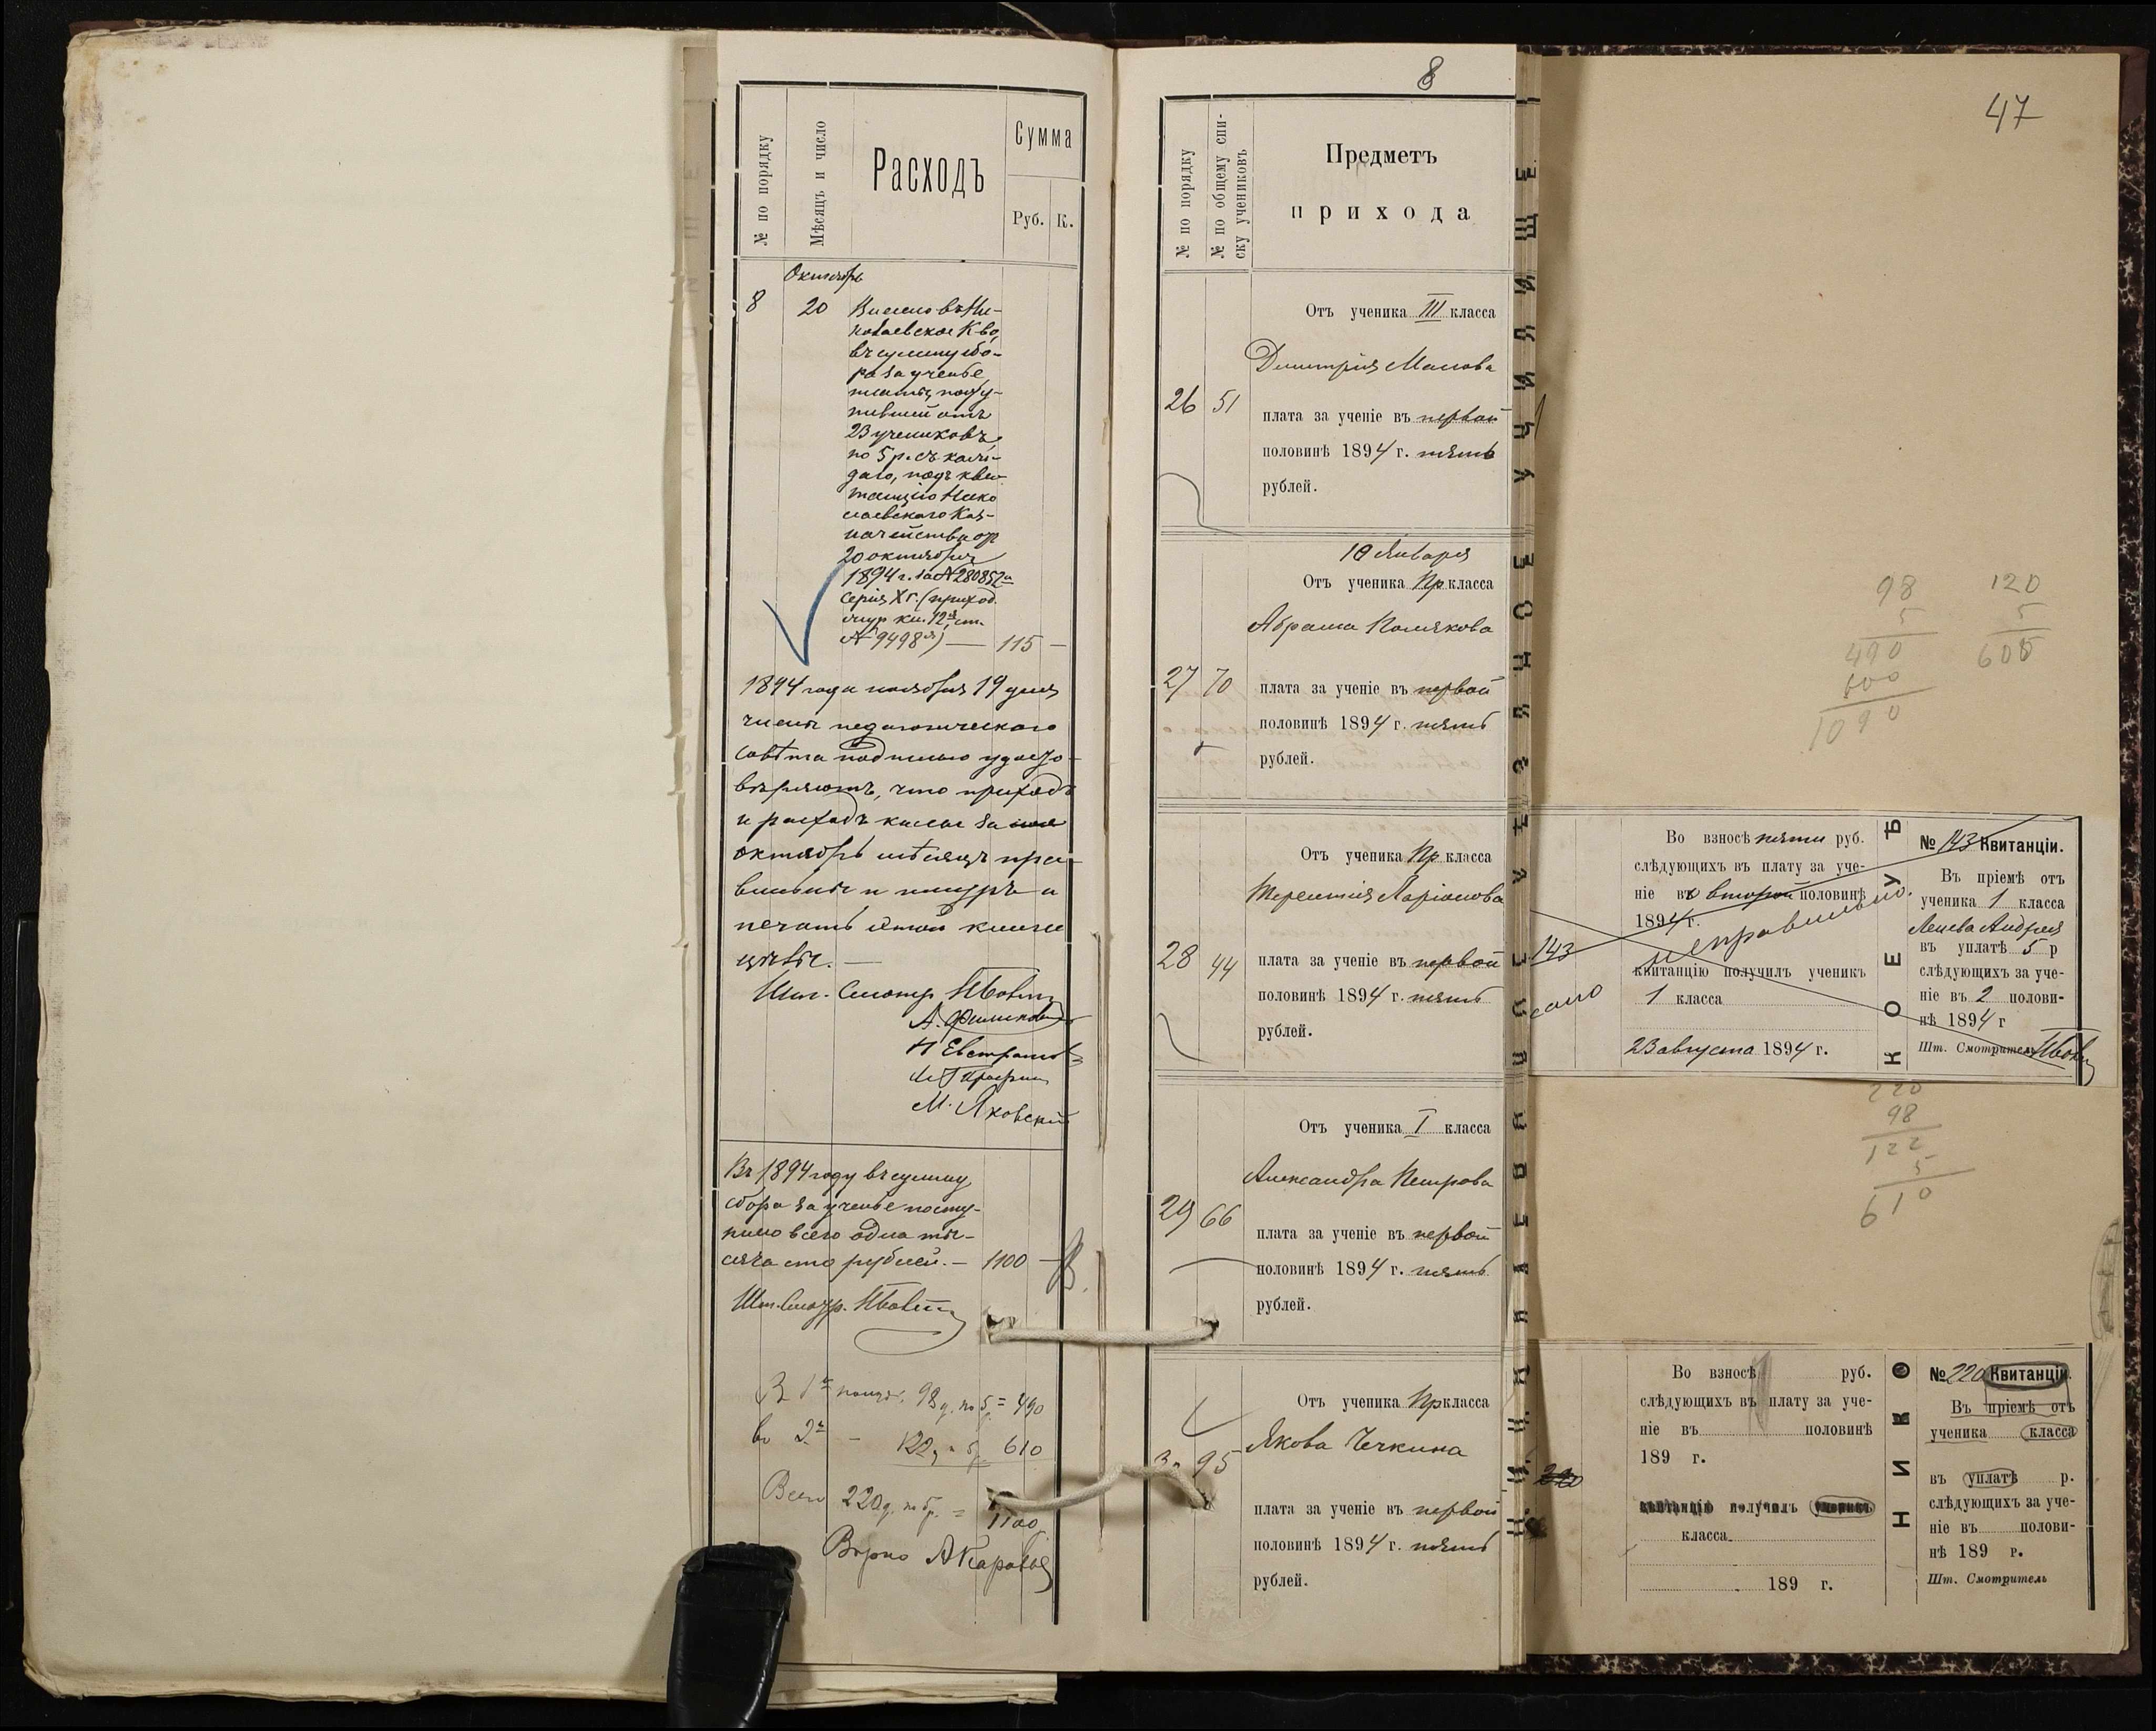 № по порядку
Мѣсяцъ и число
Расходъ
Сумма
Руб. К.
Октябрь
8 20 Внесено въ Ни-
колаевское К-во,
въ сумму сбо-
ра за ученье
платы, посту-
пившей отъ
23 учениковъ,
по 5 р. съ каж-
даго, подъ кви-
танцію Нико
лаевскаго Каз-
начейства от
20 октября
1894 г. за № 280852
Серія XГ. (приход.
жур кн. 12 ст.
№ 9498) — 115 —
1894 года ноября 19 дня
члены педагогическаго
совѣта подписью удосто-
вѣряютъ, что приходъ
и расходъ книги за
октябрь мѣсяцъ пра-
вильны и шнуръ и
печать этой книги
цѣлы. —
Шт. Смотр.
А. Филиппов
М. Яковскій
Въ 1894 году въ сумму
сбора за ученье посту-
пило всего одна ты-
сяча сто рублей. — 1100 —
Шт. Смотр.
98 по 5 = 490
во 2й — 122 5 610
Всего 220 по 5 р. = 1100
Вѣрно
8
№ по порядку
№ по общему спи-
ску учениковъ
Предметъ
прихода
Отъ ученика III класса
Димитрія Малова
26 51
плата за ученіе въ первой
половинѣ 1894 г. пять
рублей.
10 Января
Отъ ученика Пр класса
Абрама Полякова
27 70
плата за ученіе въ первой
половинѣ 1894 г. пять
рублей.
Отъ ученика Пр. класса
Терентія Ларіонова
28 44
плата за ученіе въ первой
половинѣ 1894 г. пять
рублей.
Отъ ученика I класса
Александра Петрова
29 66
плата за ученіе въ первой
половинѣ 1894 г. пять
рублей.
Отъ ученика Пр класса
Якова Чечкина
95
плата за ученіе въ первой
половинѣ 1894 г. пять
рублей.
47
98 120
5 5
490 600
600
1090
143
Во взносѣ пяти руб.
слѣдующихъ въ плату за уче-
ніе во второй половинѣ
1894 г.
неправильно.
квитанцію получилъ ученикъ
1 класса
23 августа 1894 г.
КОЕ УЪ
№ 143 Квитанціи.
Въ пріемѣ отъ
ученика 1 класса
Андрея
въ уплатѣ 5 р
слѣдующихъ за уче-
ніе въ 2 полови-
нѣ 1894 г
Шт. Смотритель
220
98
122
5
610
220
Во взносѣ руб.
слѣдующихъ въ плату за уче-
ніе въ половинѣ
189 г.
квитанцію получилъ ученикъ
класса
189 г.
НИКО
№ 220 Квитанціи.
Въ пріемѣ отъ
ученика класса
въ уплатѣ р.
слѣдующихъ за уче-
ніе въ полови-
нѣ 189 г.
Шт. Смотритель